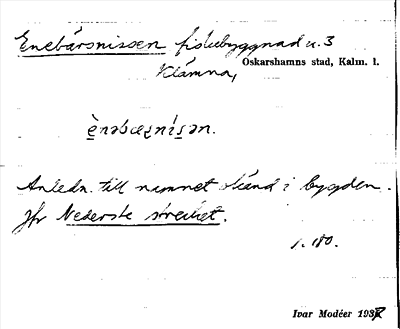 Enebärsnissen fiskebyggnad n. 3
Klämna,
Oskarshamns stad, Kalm. l.
è̱nəbæʂnísən.
Anledn. till namnet okänd i bygden.
Jfr Nederste strecket.
s. 180.
Ivar Modéer 1937